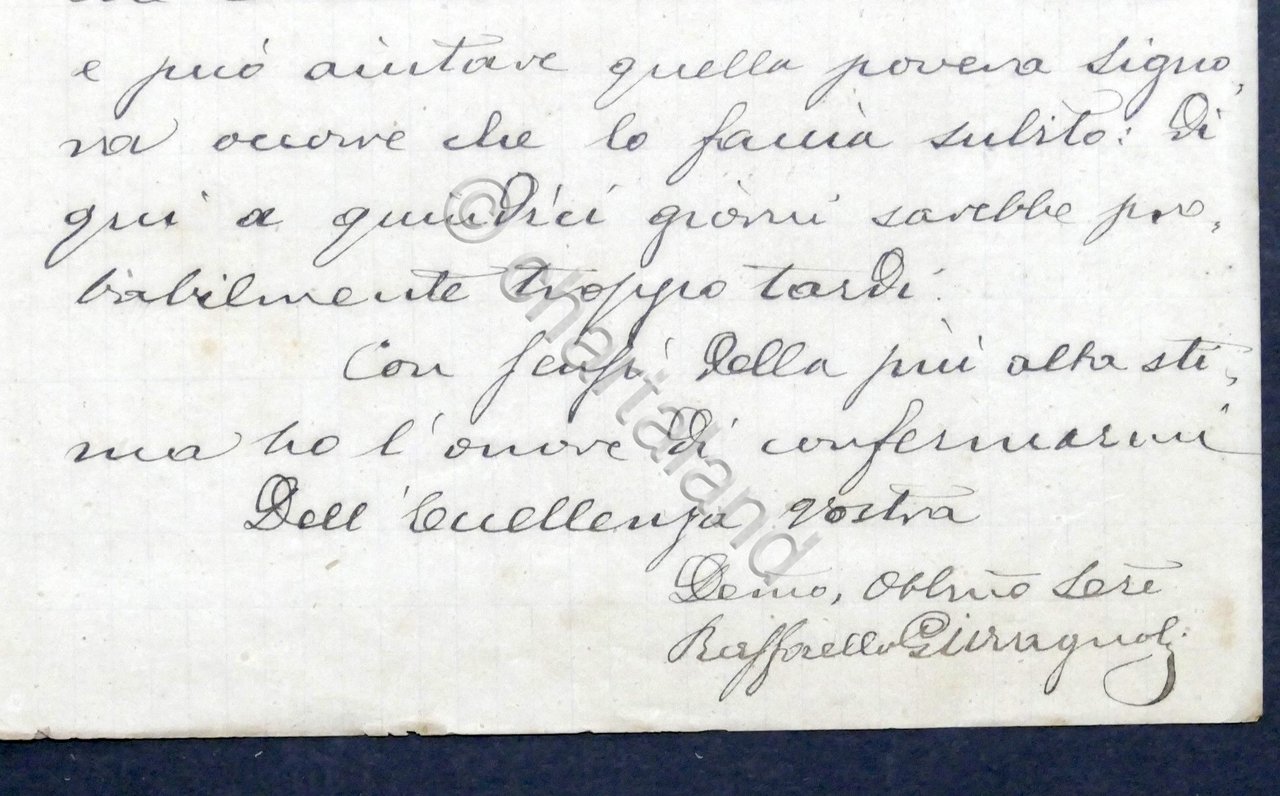 e può aiutare quella povera signo,
ra occorre che lo faccia subito: di
qui a quindici giorni sarebbe pro,
babilmente troppo tardi.
Con sensi della più alta sti,
ma ho l'onore di confermarmi
Dell'Eccellenza Vostra
Demo, Obblmo Serv
Raffaello
© chartaland